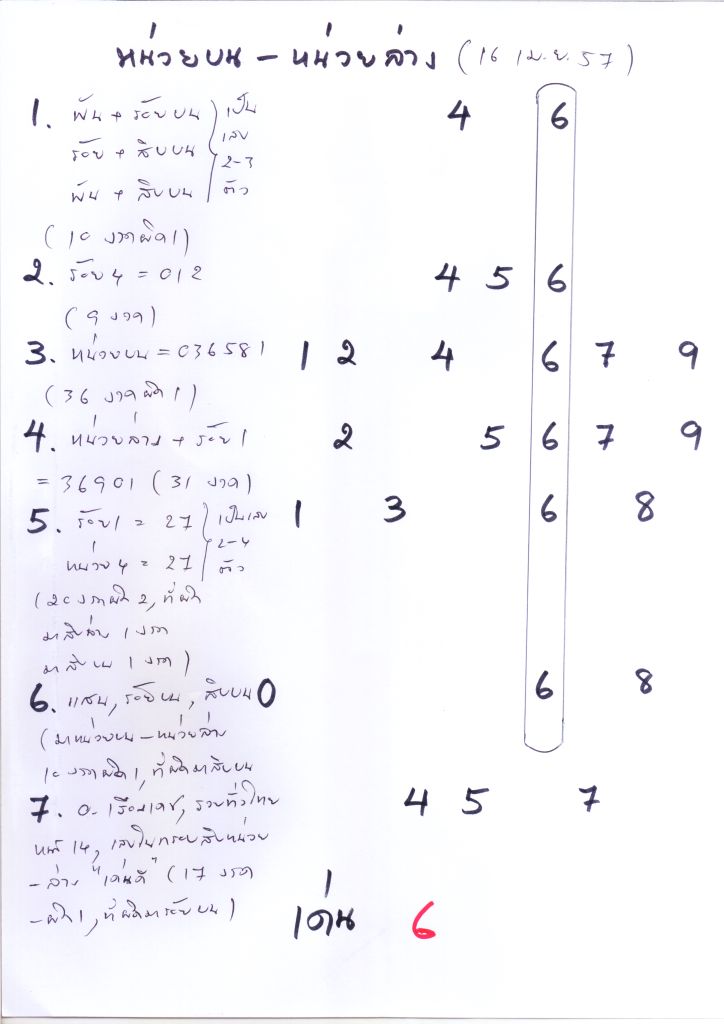 หน่วยบน - หน่วยล่าง (16 เม.ย. 57)
1. พัน + ร้อยบน เป็น 4 6
ร้อย + สิบบน เลข
2-3
พัน + สิบบน ตัว
(10 งวดผิด 1)
2. ร้อย 4 = 012 4 5 6
(9 งวด)
3. หน่วยบน = 036581 1 2 4 6 7 9
(36 งวดผิด 1)
4. หน่วยล่าง + ร้อย 1 2 5 6 7 9
= 36901 (31 งวด)
5. ร้อย 1 = 27 เป็นเลข 1 3 6 8
2-4
หน่วย 4 = 27 ตัว
(20 งวดผิด 2, ที่ผิด
มาสิบล่าง 1 งวด
มาสิบบน 1 งวด)
6. แสน, ร้อยบน, สิบบน 0 6 8
(มาหน่วยบน - หน่วยล่าง
10 งวดผิด 1, ที่ผิดมาสิบบน
7. อ. เรืองเดช, รวยทั่วไทย 4 5 7
หน้า 14, เลขในกรอบสิบหน่วย
- ล่าง "เด่นดี" (17 งวด
- ผิด 1, ที่ผิดมาร้อยบน)
เด่น 6